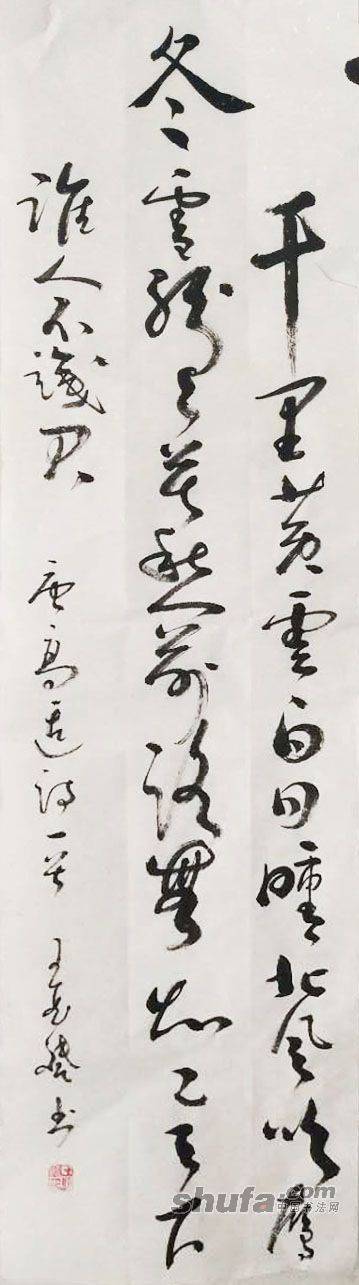 千里黄雲白日曛北风吹雁
冬雪紛〻莫愁前路無知己天下
誰人不識君 唐高适詩一首 王書
shufa.com
中国书法网